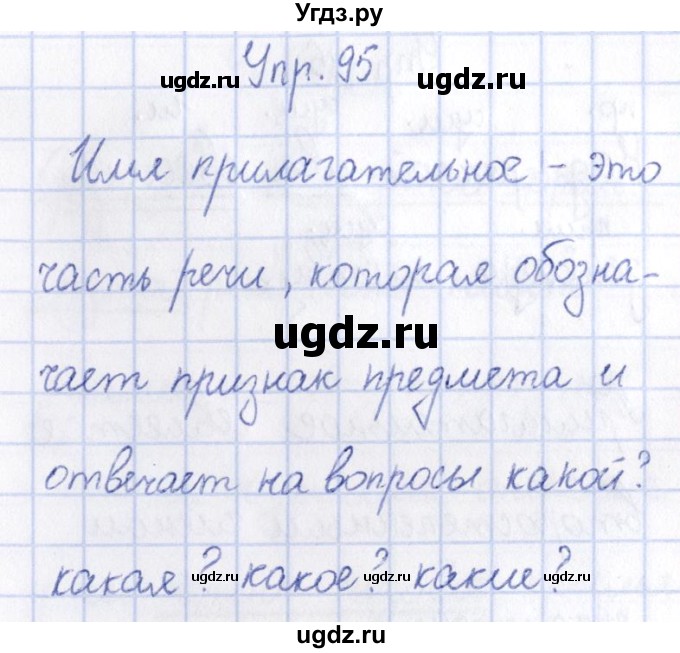 Угдз.ру
Упр. 95
ugdz.ru ugdz.ru
Имя прилагательное - это
часть речи, которая обозна-
ugdz.ru
чает признак предмета и
ugdz.ru
отвечает на вопросы какой?
какая? какое? какие?
ugdz.ru ugdz.ru ugdz.ru ugdz.ru
ugdz.ru